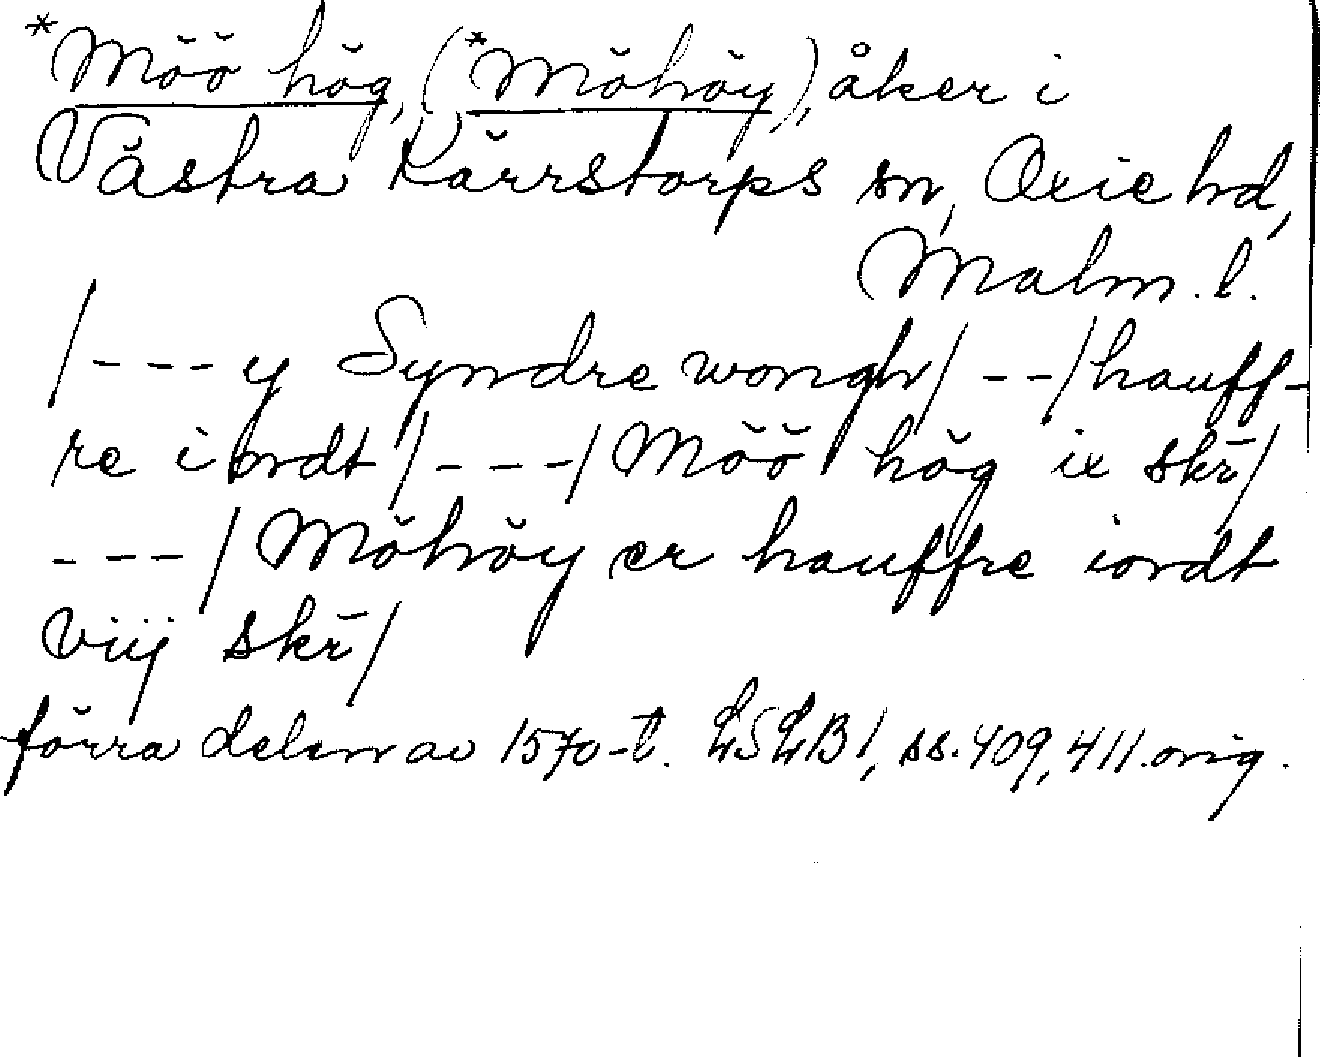 *Möö hög, (*Möhöy), åker i
Västra Kärrstorps sn, Oxie hd,
Malm. l.
/---y Syndre wongh/--/hauff-
re iordt/---/Möö hög ix skr̄/
---/Möhöy er hauffre iordt
viij skr̄/
förra delen av 1570-t. LSLB1, ss. 409, 411. orig.